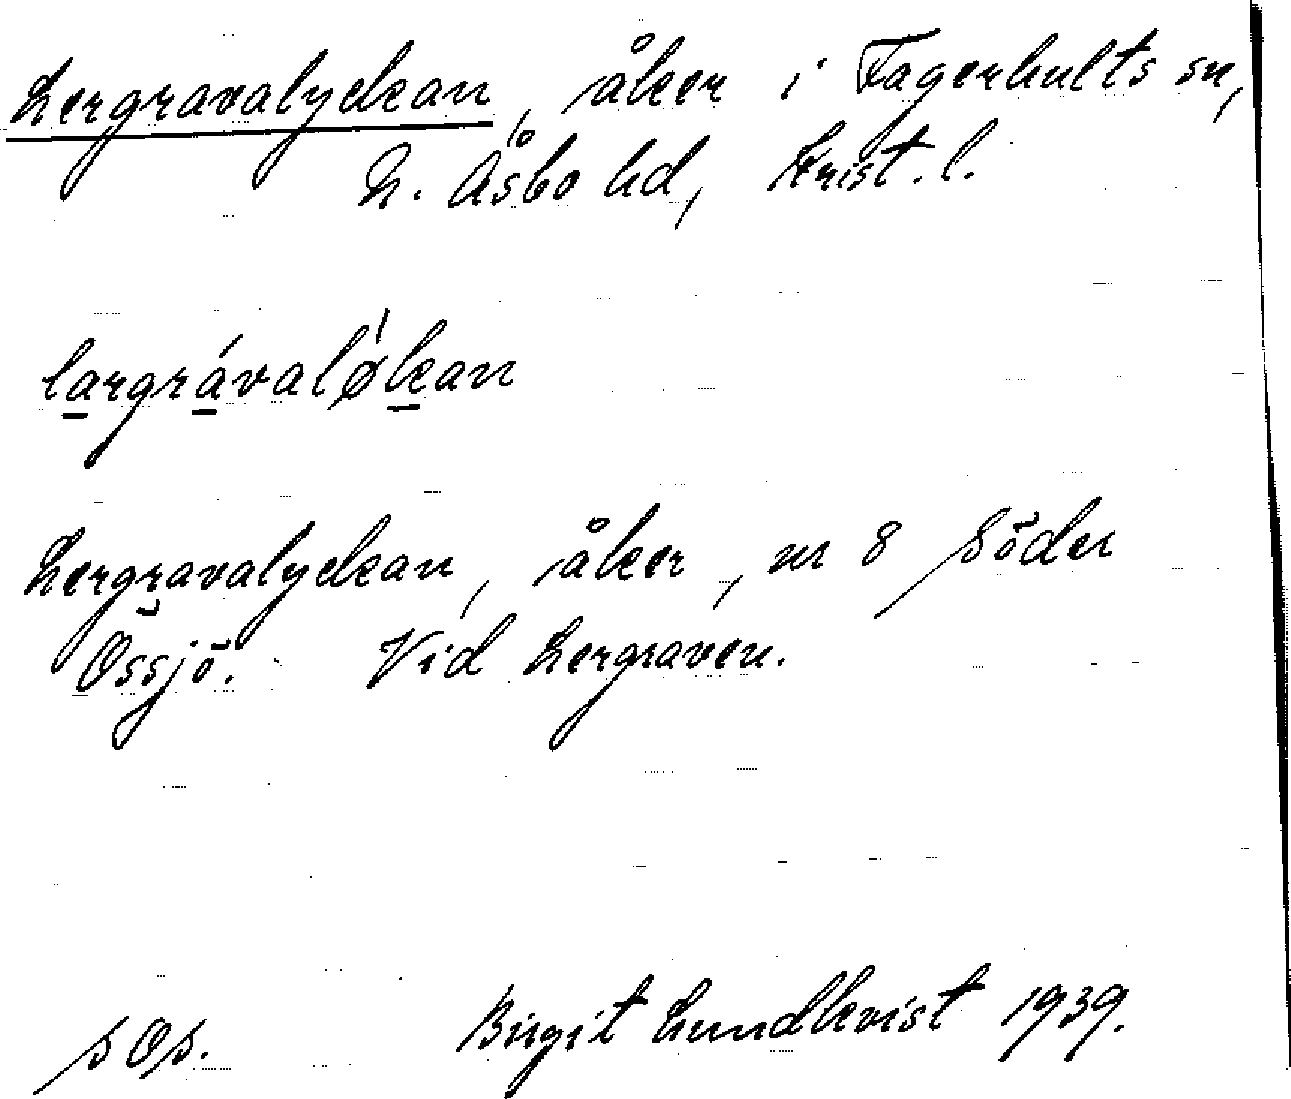 Lergravalyckan, åker i Fagerhults sn,
N. Åsbo hd, Krist. l.
largrávaløkan
Lergravalyckan, åker, nr 8 Söder
Össjö. Vid Lergraven.
SOS. Birgit Lundkvist 1939.